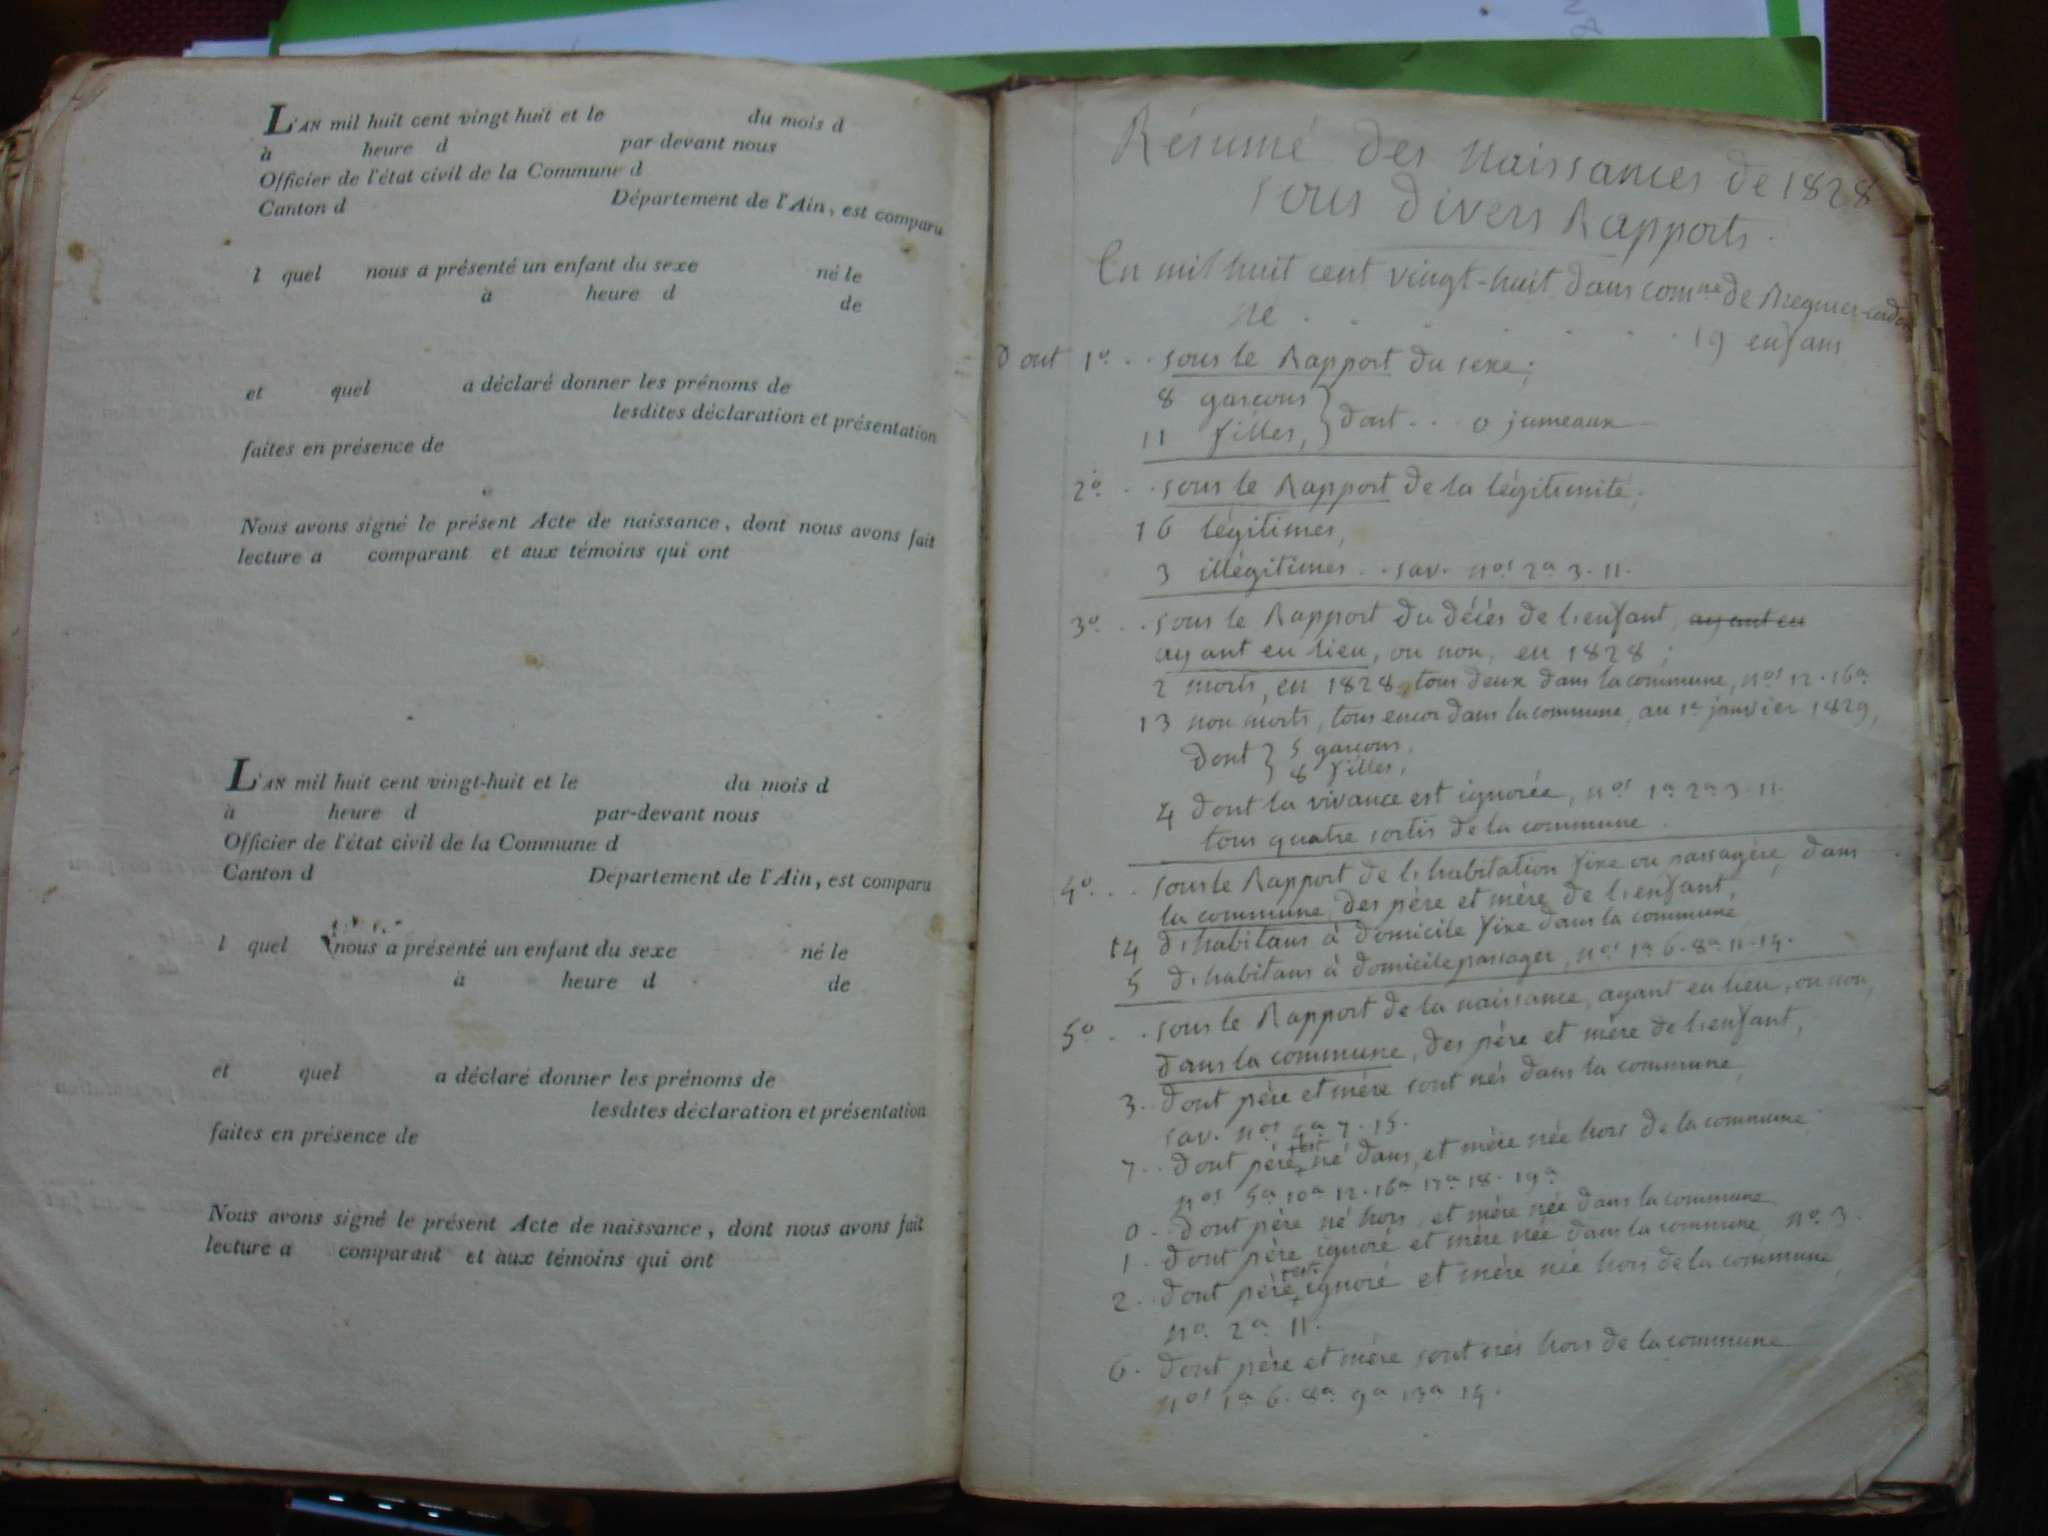 L'AN mil huit cent vingt huit et le du mois d
à heure d par devant nous
Officier de l'état civil de la Commune d
Canton d Département de l'Ain, est comparu
l quel nous a présenté un enfant du sexe né le
à heure d de
et quel a déclaré donner les prénoms de
lesdites déclaration et présentation
faites en présence de
Nous avons signé le présent Acte de naissance, dont nous avons fait
lecture a comparant et aux témoins qui ont
L'AN mil huit cent vingt-huit et le du mois d
à heure d par-devant nous
Officier de l'état civil de la Commune d
Canton d Département de l'Ain, est comparu
l quel nous a présenté un enfant du sexe né le
à heure d de
et quel a déclaré donner les prénoms de
lesdites déclaration et présentation
faites en présence de
Nous avons signé le présent Acte de naissance, dont nous avons fait
lecture a comparant et aux témoins qui ont
Résumé des Naissances de 1828
sous divers Rapports.
En mil huit cent vingt-huit dans com.ne de
né . . . . . . . 19 enfans
Dont 1º. . . sous le Rapport du sexe;
8 garçons } dont . . 0 jumeaux
11 filles,
2º. . . sous le Rapport de la légitimité;
16 légitimes,
3 illégitimes. . sav. nos 2a 3. 11.
3º. . . sous le Rapport du décès de l'enfant, ayant eu
ayant eu lieu, ou non, en 1828;
2 morts, en 1828, tous deux dans la commune, nos 12. 16a
13 non morts, tous encor dans la commune, au 1er janvier 1829,
dont } 5 garçons,
8 filles,
4 dont la vivance est ignorée, nos 1a 2a 3. 11.
tous quatre sortis de la commune.
4º. . . sous le Rapport de l'habitation fixe ou passagère, dans
la commune, des père et mère de l'enfant,
14 d'habitans à domicile fixe dans la commune
5 d'habitans à domicile passager, nos 1a 6. 8a 11. 14.
5º. . . sous le Rapport de la naissance, ayant eu lieu, ou non,
dans la commune, des père et mère de l'enfant,
3. dont père et mère sont nés dans la commune,
sav. nos 4a 7. 15.
7. . dont père est né dans, et mère née hors de la commune,
nos 5a 10a 12. 16a 17a 18. 19a
0. dont père né hors, et mère née dans la commune
1. dont père ignoré et mère née dans la commune, nº. 3.
2. dont père est ignoré et mère née hors de la commune,
nº. 2a 11.
6. dont père et mère sont nés hors de la commune
nos 1a 6. 8a 9a 13a 14.